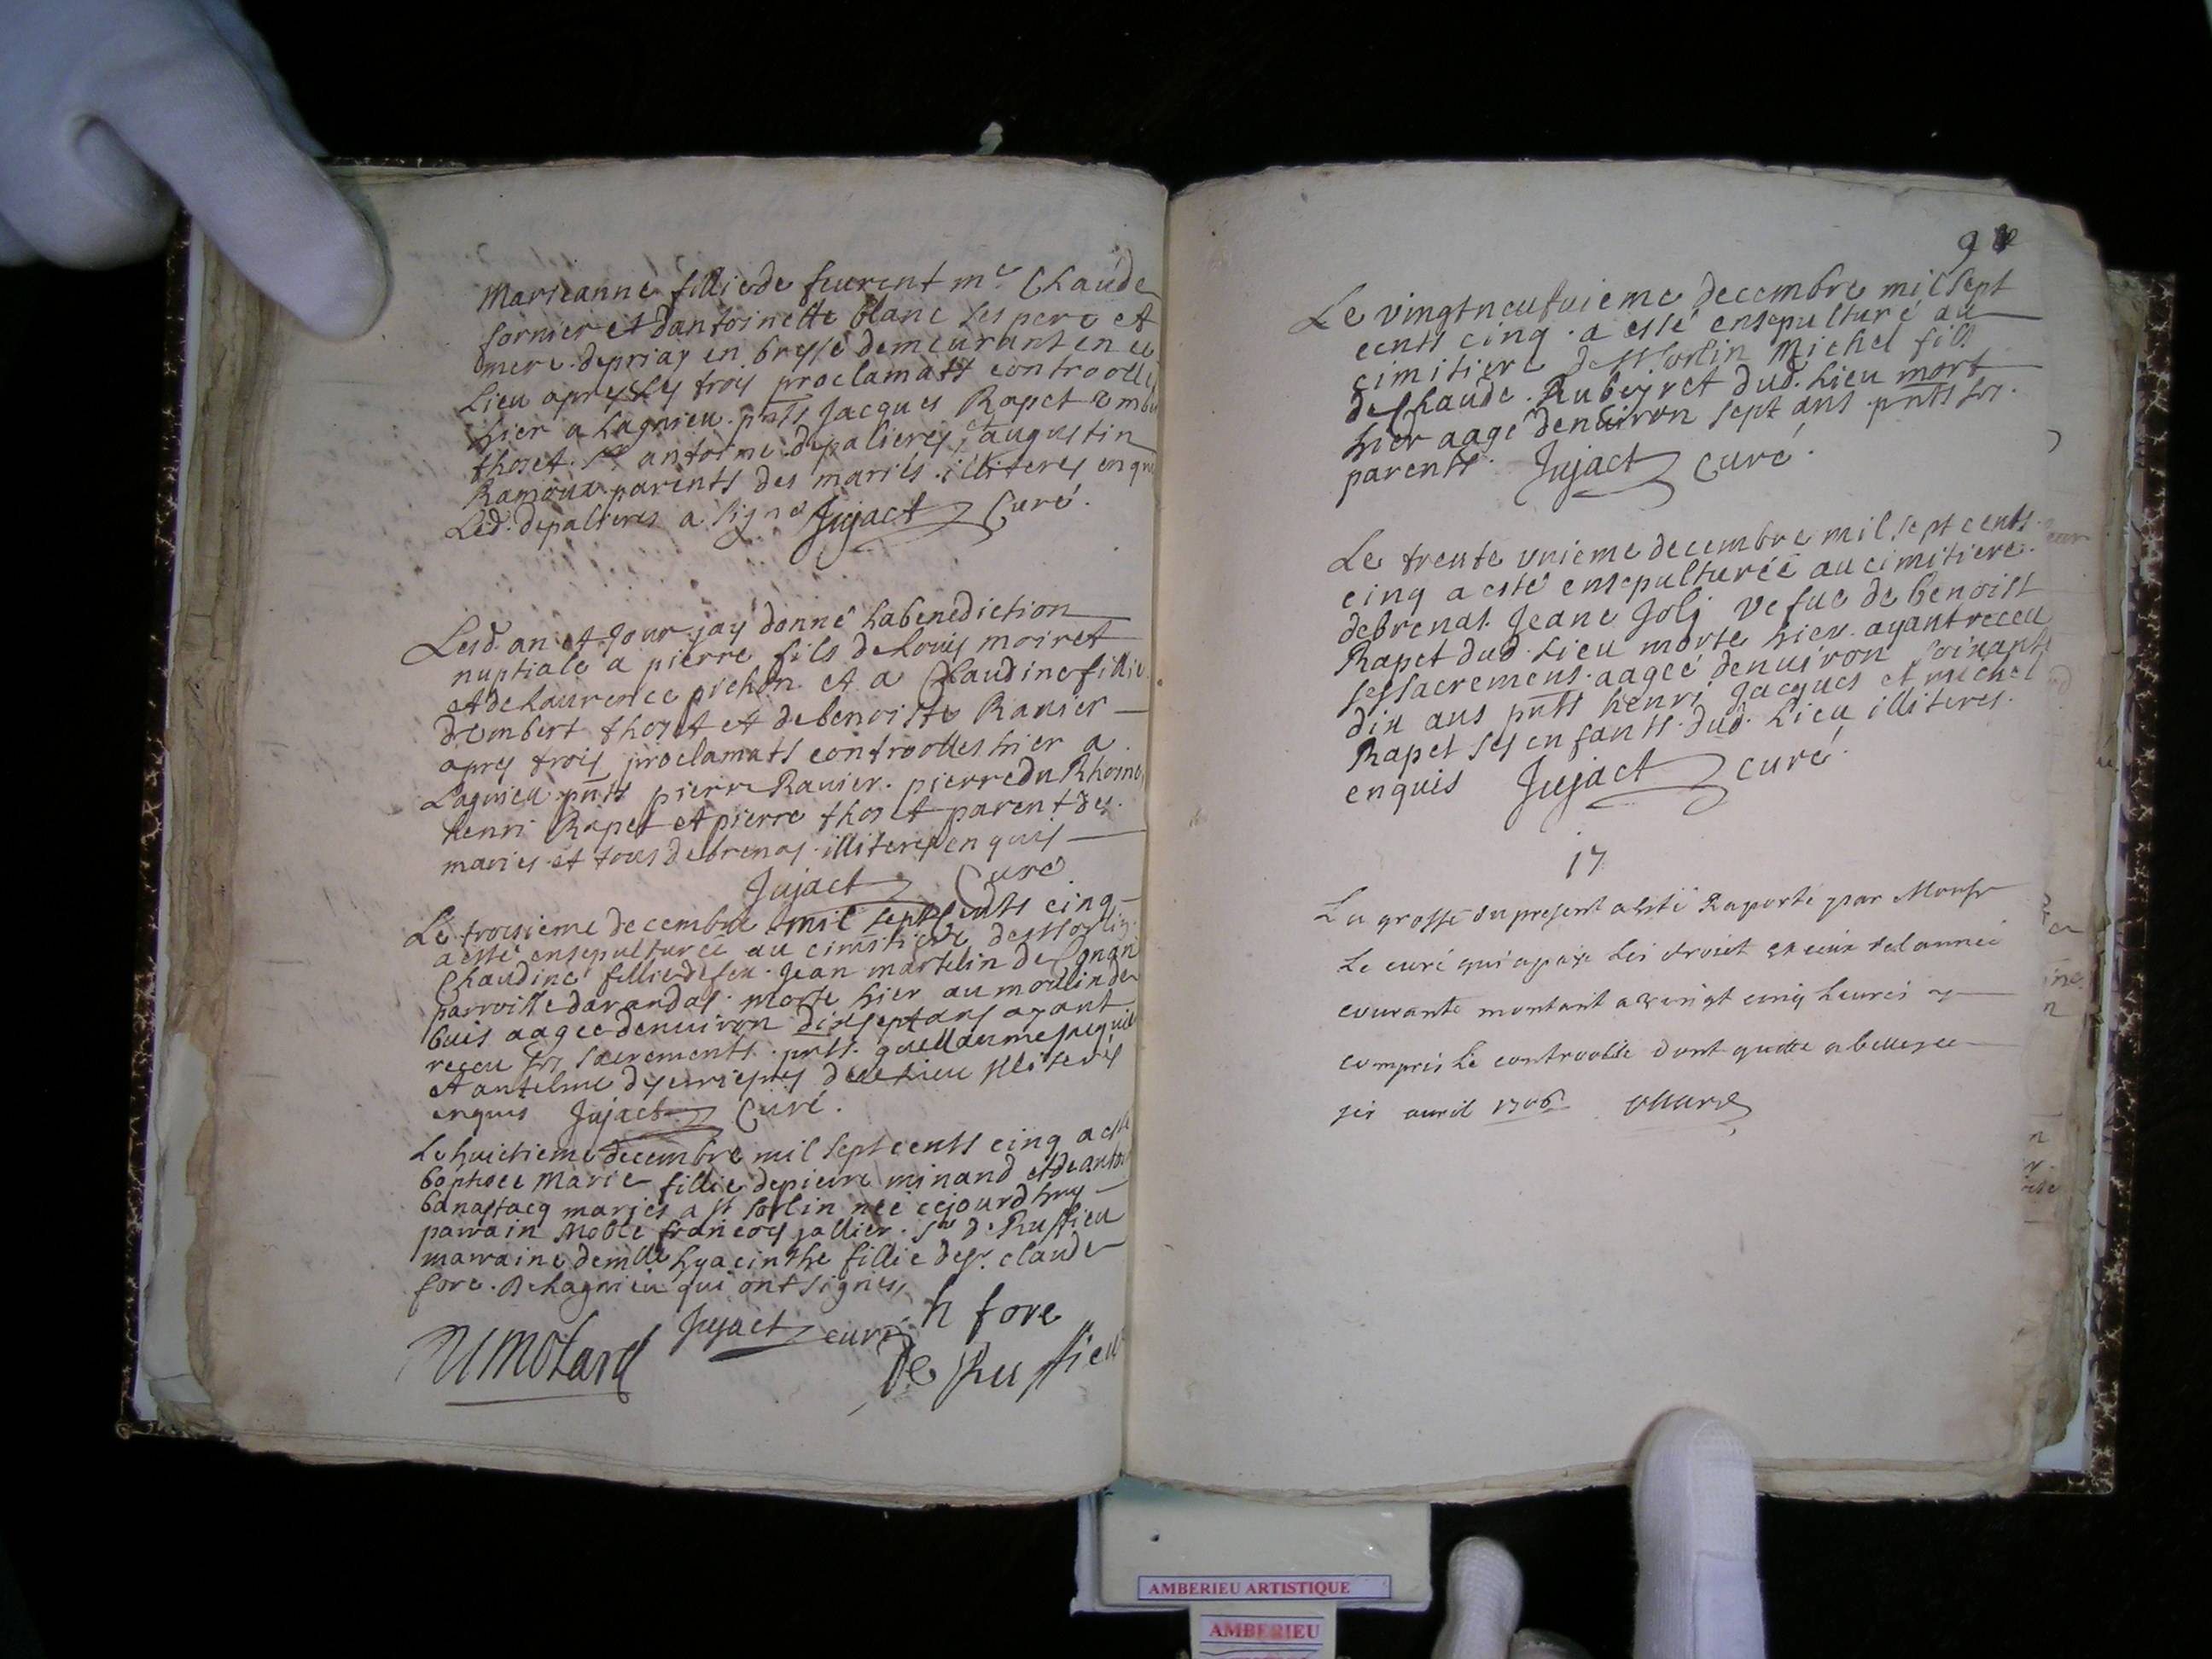 Marieanne fillie de feu rent m.e Chaude
fornier et dantoinette blanc ses pere et
mere. depriay en bresse demeurant en ce
Lieu apres Les trois proclamats controolles
hier a Lagnieu. pnts Jacques Rapet
thoset. Sr antoine depalieres, augustin
Ramoux parents des mariés. illiteres enquis
Led. depalieres a signé Jujact Curé.
Lesd. an et Jour jay donné La benediction
nuptiale a pierre fils de Louis moiret
et de Laurence pichon et a Claudine fillie
dumbert thoset et de benoiste Ravier
apres trois proclamats controolles hier a
Lagnieu pnts pierre Ravier. pierre du Rhosne
henri Rapet et pierre thoset parent des
maries et tous de brenas illiteres enquis
Jujact Curé
Le troisieme decembre mil sept cents cinq
a esté ensepulturée au cimitiere de st sorlin
Chaudine fillie de feu Jean martelin de
parroisse darandas. morte hier au moulin de
buis aagee denuiron dix sept ans ayant
receu ses sacrements. pnts. guillaume
et antelme illiteres
enquis Jujact Curé.
Le huictieme decembre mil sept cents cinq a esté
baptisee Marie fillie de pierre minand et de
mariés a st sorlin née cejourdhuy
parrain Noble francois jallier. Sr de Ruffieu
marraine demlle hyacinthe fillie de sr. claude
fore. De Lagnieu qui ont signes,
Jujact curé h fore
Dumolard De Ruffieu
Le vingtneufuieme decembre mil sept
cents cinq. a esté ensepulturé au
cimitiere de st sorlin Michel fils
de Chaude. Rubeyret dud. Lieu mort
hier aagé denuiron sept ans pnts ses
parents. Jujact Curé.
Le trente vnieme decembre mil sept cents
cinq a esté ensepulturée au cimitiere.
de brenas. Jeane Joly vefue de benoist
Rapet dud. Lieu morte hier. ayant receu
ses sacremens. aagée denuiron soixante
dix ans pnts henri Jacques et michel
Rapet ses enfants. dud. Lieu illiteres.
enquis Jujact curé.
17
La grosse du present a esté Raporté par Monsr
Le curé qui a payé Les droits
courante montant a vingt cinq Liures y
compris Le controolle dont quitte a belley ce
six auril 1706
AMBERIEU ARTISTIQUE
AMBERIEU